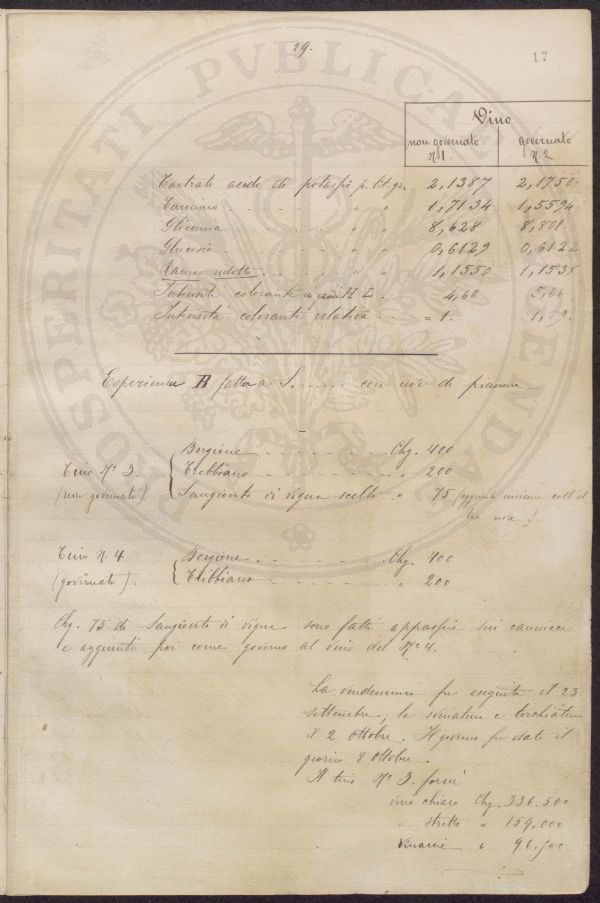 29.
17
PROSPERITATI PVBLICAE AVGENDAE
Vino
non governato governato
N.1. N.2
Tartrato acido di potassio p. lit. gr. 2,1387 2,1750
Tannino " " 1,7134 1,5594
Glicerina " " 8,628 8,801
Glucosio " " 0,6129 0,6122
" " 1,1550 1,1538
Intensità colorante 4,60
Intensità colorante relativa " 1.
Esperienza B fatta a S....... con uve di pianura
Borgione Chg. 400
Tino No 3. Trebbiano " 200
(non governato) Sangioveto di vigna scelto " 75 (aggiunto insieme coll'al
tra uva)
Tino N. 4 Borgione Chg. 400
(governato). Trebbiano " 200
Chg. 75 di Sangioveto di vigna sono fatti appassire sui cannicci
e aggiunti poi come governo al vino del No 4.
La vendemmia fu eseguita il 23
settembre, la svinatura e torchiatura
il 2 Ottobre. Il governo fu dato il
giorno 8 Ottobre.
Il tino No 3. fornì
vino chiaro Chg. 336.500
" stretto " 159.000
Vinaccie " 96.500